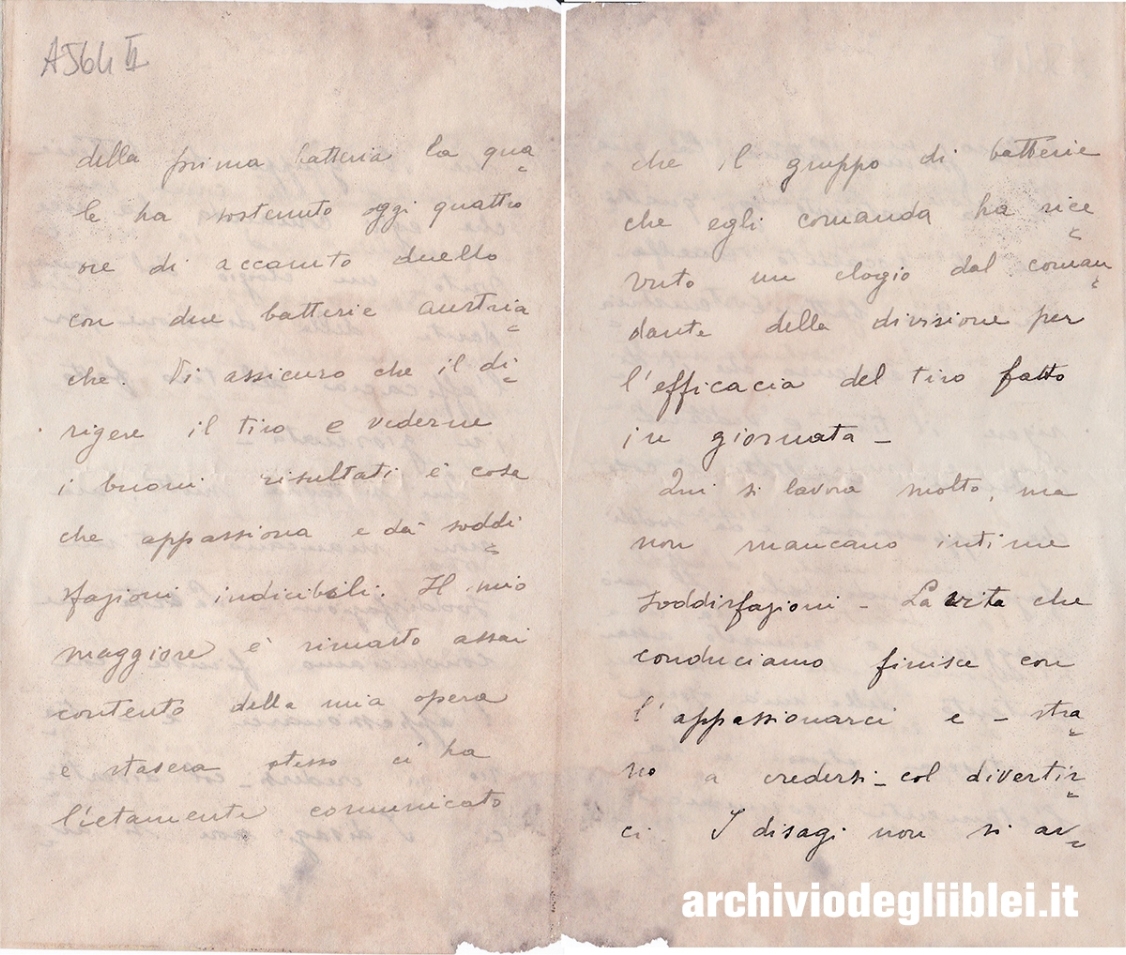 A564 II
della prima batteria la qua
le ha sostenuto oggi quattro
ore di accanito duello
con due batterie austria
che. Vi assicuro che il di-
rigere il tiro e vederne
i buoni risultati è cosa
che appassiona e dà soddi
sfazioni indicibili. Il mio
maggiore è rimasto assai
contento della mia opera
e stasera stesso ci ha
lietamente comunicato
che il gruppo di batterie
che egli comanda ha rice
vuto un elogio dal coman
dante della divisione per
l'efficacia del tiro fatto
in giornata -
Qui si lavora molto, ma
non mancano intime
soddisfazioni - La vita che
conduciamo finisce con
l'appassionarci e - stra
no a credersi - col divertir
ci. I disagi non si av
archiviodegliiblei.it